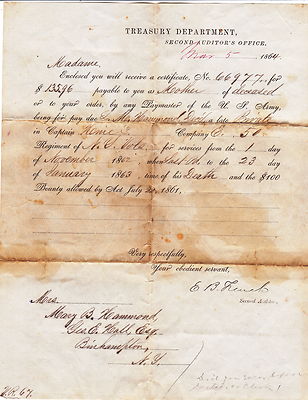 TREASURY DEPARTMENT,
SECOND AUDITOR'S OFFICE,
Mar 5 1864.
Madame,
Enclosed you will receive a certificate, No. 66977, for
$ 135.96 payable to you as Mother of deceased
or to your order, by any Paymaster of the U. S. Army,
being for pay due Hammond late Private
in Captain Company E, 50
Regiment of N. Y. Vols. for services from the 1 day
of November 1862, when last pd. to the 23 day
of January 1863 time of his Death and the $100
Bounty allowed by Act July 22, 1861.
Very respectfully,
Your obedient servant,
E. B. French
Second Auditor.
Mrs.
Mary B. Hammond,
Geo. E. Hall, Esq.
Binghampton,
N. Y.